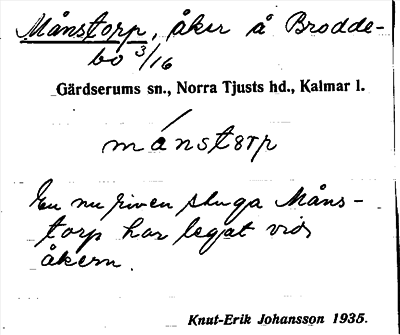 Månstorp, åker å Brodde-
bo 3/16
Gärdserums sn., Norra Tjusts hd., Kalmar l.
mánstårp
En nu riven stuga Måns-
torp har legat vid
åkern.
Knut-Erik Johansson 1935.